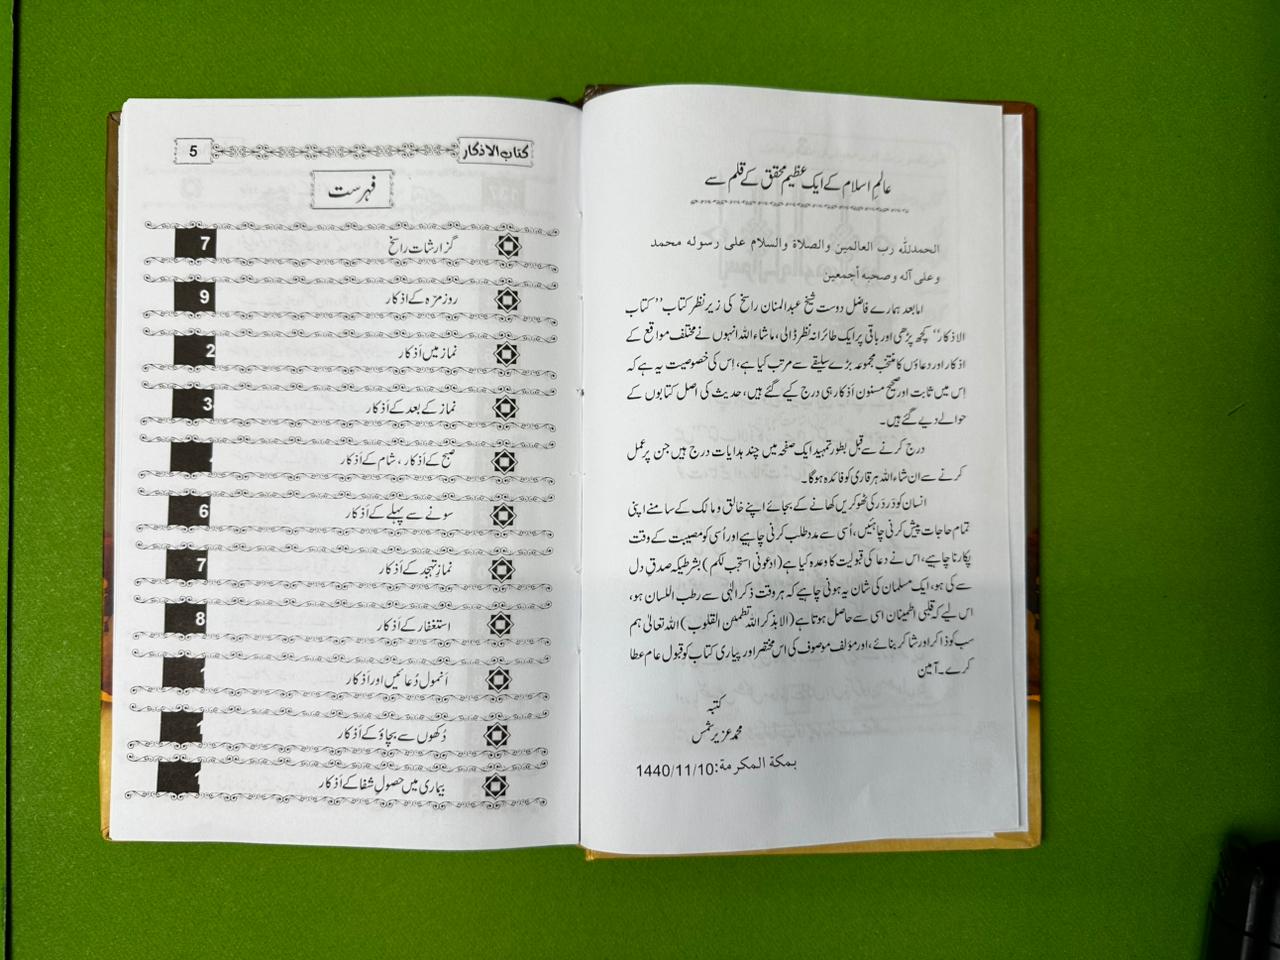 عالمِ اسلام کے ایک عظیم محقق کے قلم سے
الحمدللّٰه رب العالمین والصلاة والسلام علی رسوله محمد
وعلی آله وصحبه أجمعین
امابعد ہمارے فاضل دوست شیخ عبدالمنان راسخ کی زیر نظر کتاب ’’کتاب
الاذکار‘‘ کچھ پڑھی اور باقی پر ایک طائرانہ نظر ڈالی، ماشاء اللہ انہوں نے مختلف مواقع کے
اذکار اور دعاؤں کا منتخب مجموعہ بڑے سلیقے سے مرتب کیا ہے، اِس کی خصوصیت یہ ہے کہ
اِس میں ثابت اور صحیح مسنون اَذکار ہی درج کیے گئے ہیں، حدیث کی اصل کتابوں کے
حوالے دیے گئے ہیں۔
درج کرنے سے قبل بطور تمہید ایک صفحہ میں چند ہدایات درج ہیں جن پر عمل
کرنے سے ان شاء اللہ ہر قاری کو فائدہ ہوگا۔
انسان کو دَر دَر کی ٹھوکریں کھانے کے بجائے اپنے خالق و مالک کے سامنے اپنی
تمام حاجات پیش کرنی چاہئیں، اُسی سے مدد طلب کرنی چاہیے اور اُسی کو مصیبت کے وقت
پکارنا چاہیے، اس نے دعا کی قبولیت کا وعدہ کیا ہے (ادعونی استجب لکم) بشرطیکہ صدقِ دل
سے کی ہو، ایک مسلمان کی شان یہ ہونی چاہیے کہ ہر وقت ذکر الٰہی سے رطب اللسان ہو،
اس لیے کہ قلبی اطمینان اسی سے حاصل ہوتا ہے (الا بذکر اللہ تطمئن القلوب) اللہ تعالیٰ ہم
سب کو ذاکر اور شاکر بنائے، اور مؤلف موصوف کی اس مختصر اور پیاری کتاب کو قبول عام عطا
کرے۔ آمین
کتبہ
محمد عزیر شمس
بمكة المكرمة:1440/11/10
کتاب الاذکار 5
فہرست
گزارشات راسخ 7
روزمرہ کے اذکار 9
نماز میں اَذکار 2
نماز کے بعد کے اَذکار 3
صبح کے اَذکار، شام کے اَذکار
سونے سے پہلے کے اَذکار 6
نمازِ تہجد کے اَذکار 7
استغفار کے اَذکار 8
اَنمول دُعائیں اور اَذکار
دُکھوں سے بچاؤ کے اَذکار 1
بیماری میں حصولِ شفا کے اَذکار 1